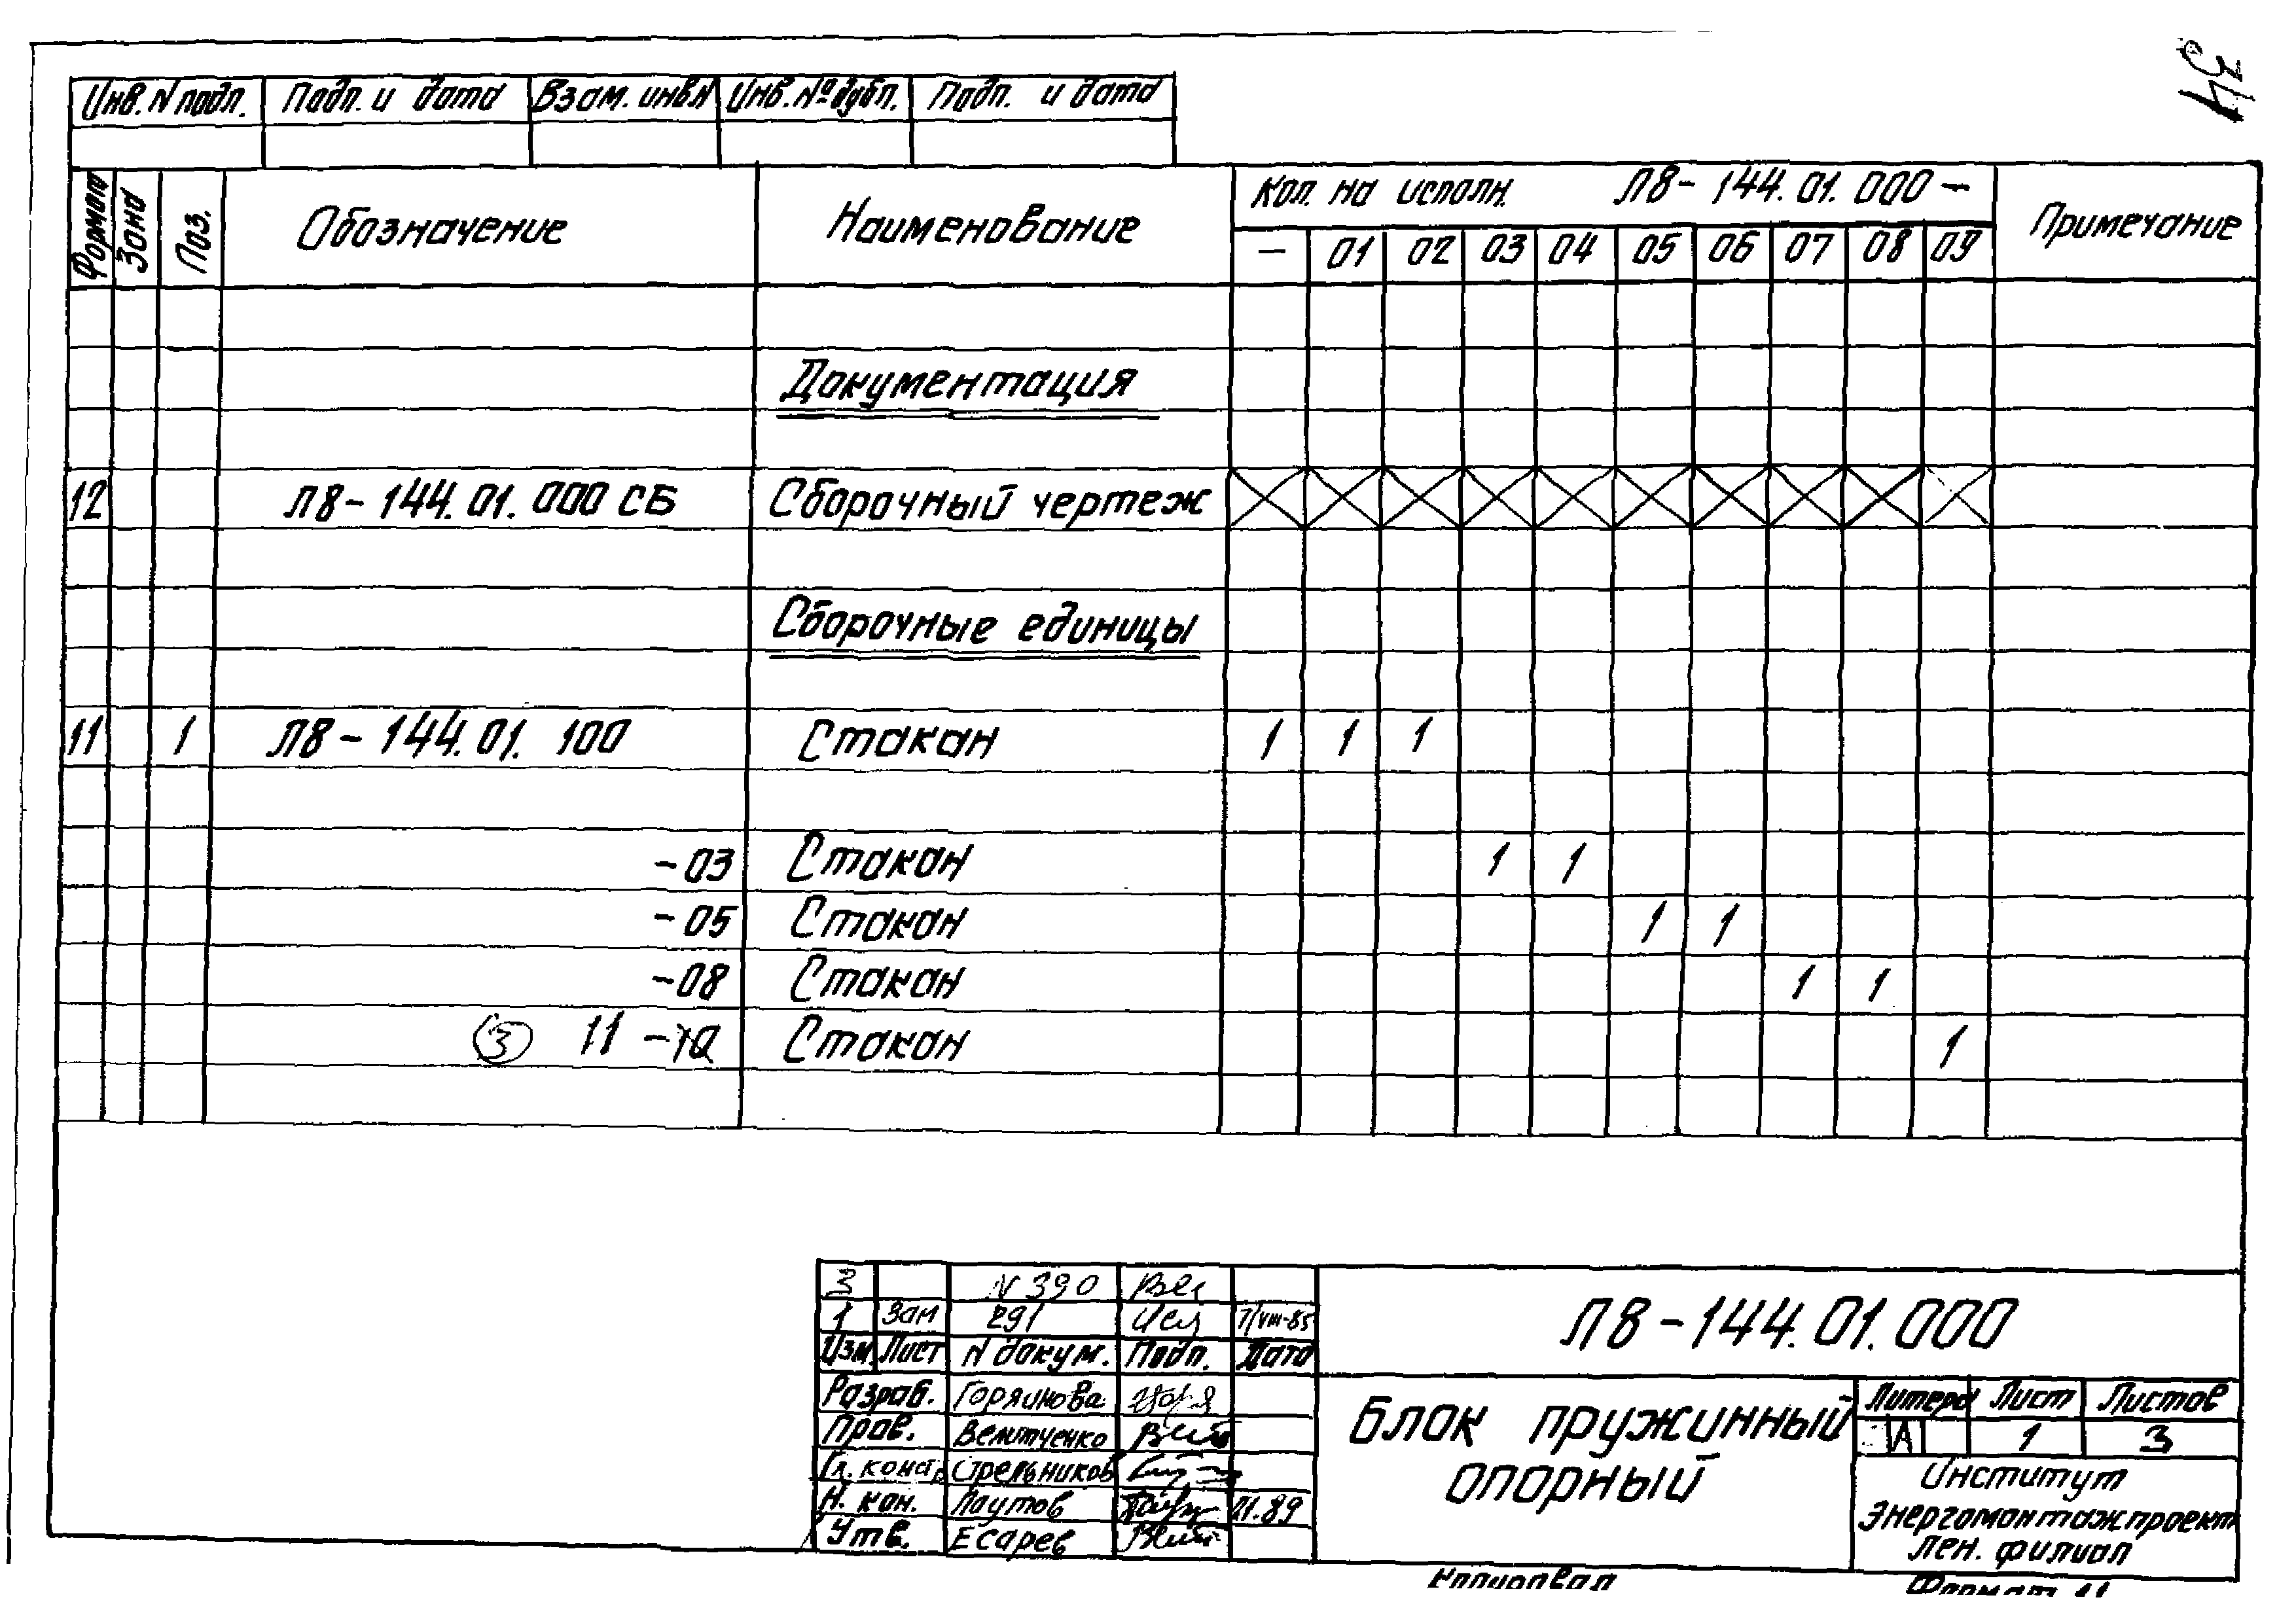 34
Инв. N подп. Подп. и дата Взам. инв N Инв. № дубл. Подп. и дата
Формат Зона Поз. Обозначение Наименование Кол. на исполн. Л8-144.01.000- Примечание
- 01 02 03 04 05 06 07 08 09
Документация
12 Л8-144.01.000 СБ Сборочный чертеж
Сборочные единицы
11 1 Л8-144.01.100 Стакан 1 1 1
-03 Стакан 1 1
-05 Стакан 1 1
-08 Стакан 1 1
3 11 -10 Стакан 1
3 N 390
1 Зам 291 7/VIII-85
Изм Лист N докум. Подп. Дата
Л8-144.01.000
Разраб. Горяинова
Пров.
Гл. констр. Стрельников
Н. кон. Лаутов 11.89
Утв. Есарев
Блок пружинный
опорный
Литера Лист Листов
А 1 3
Институт
Энергомонтажпроект
Лен. филиал
Копировал Формат 11